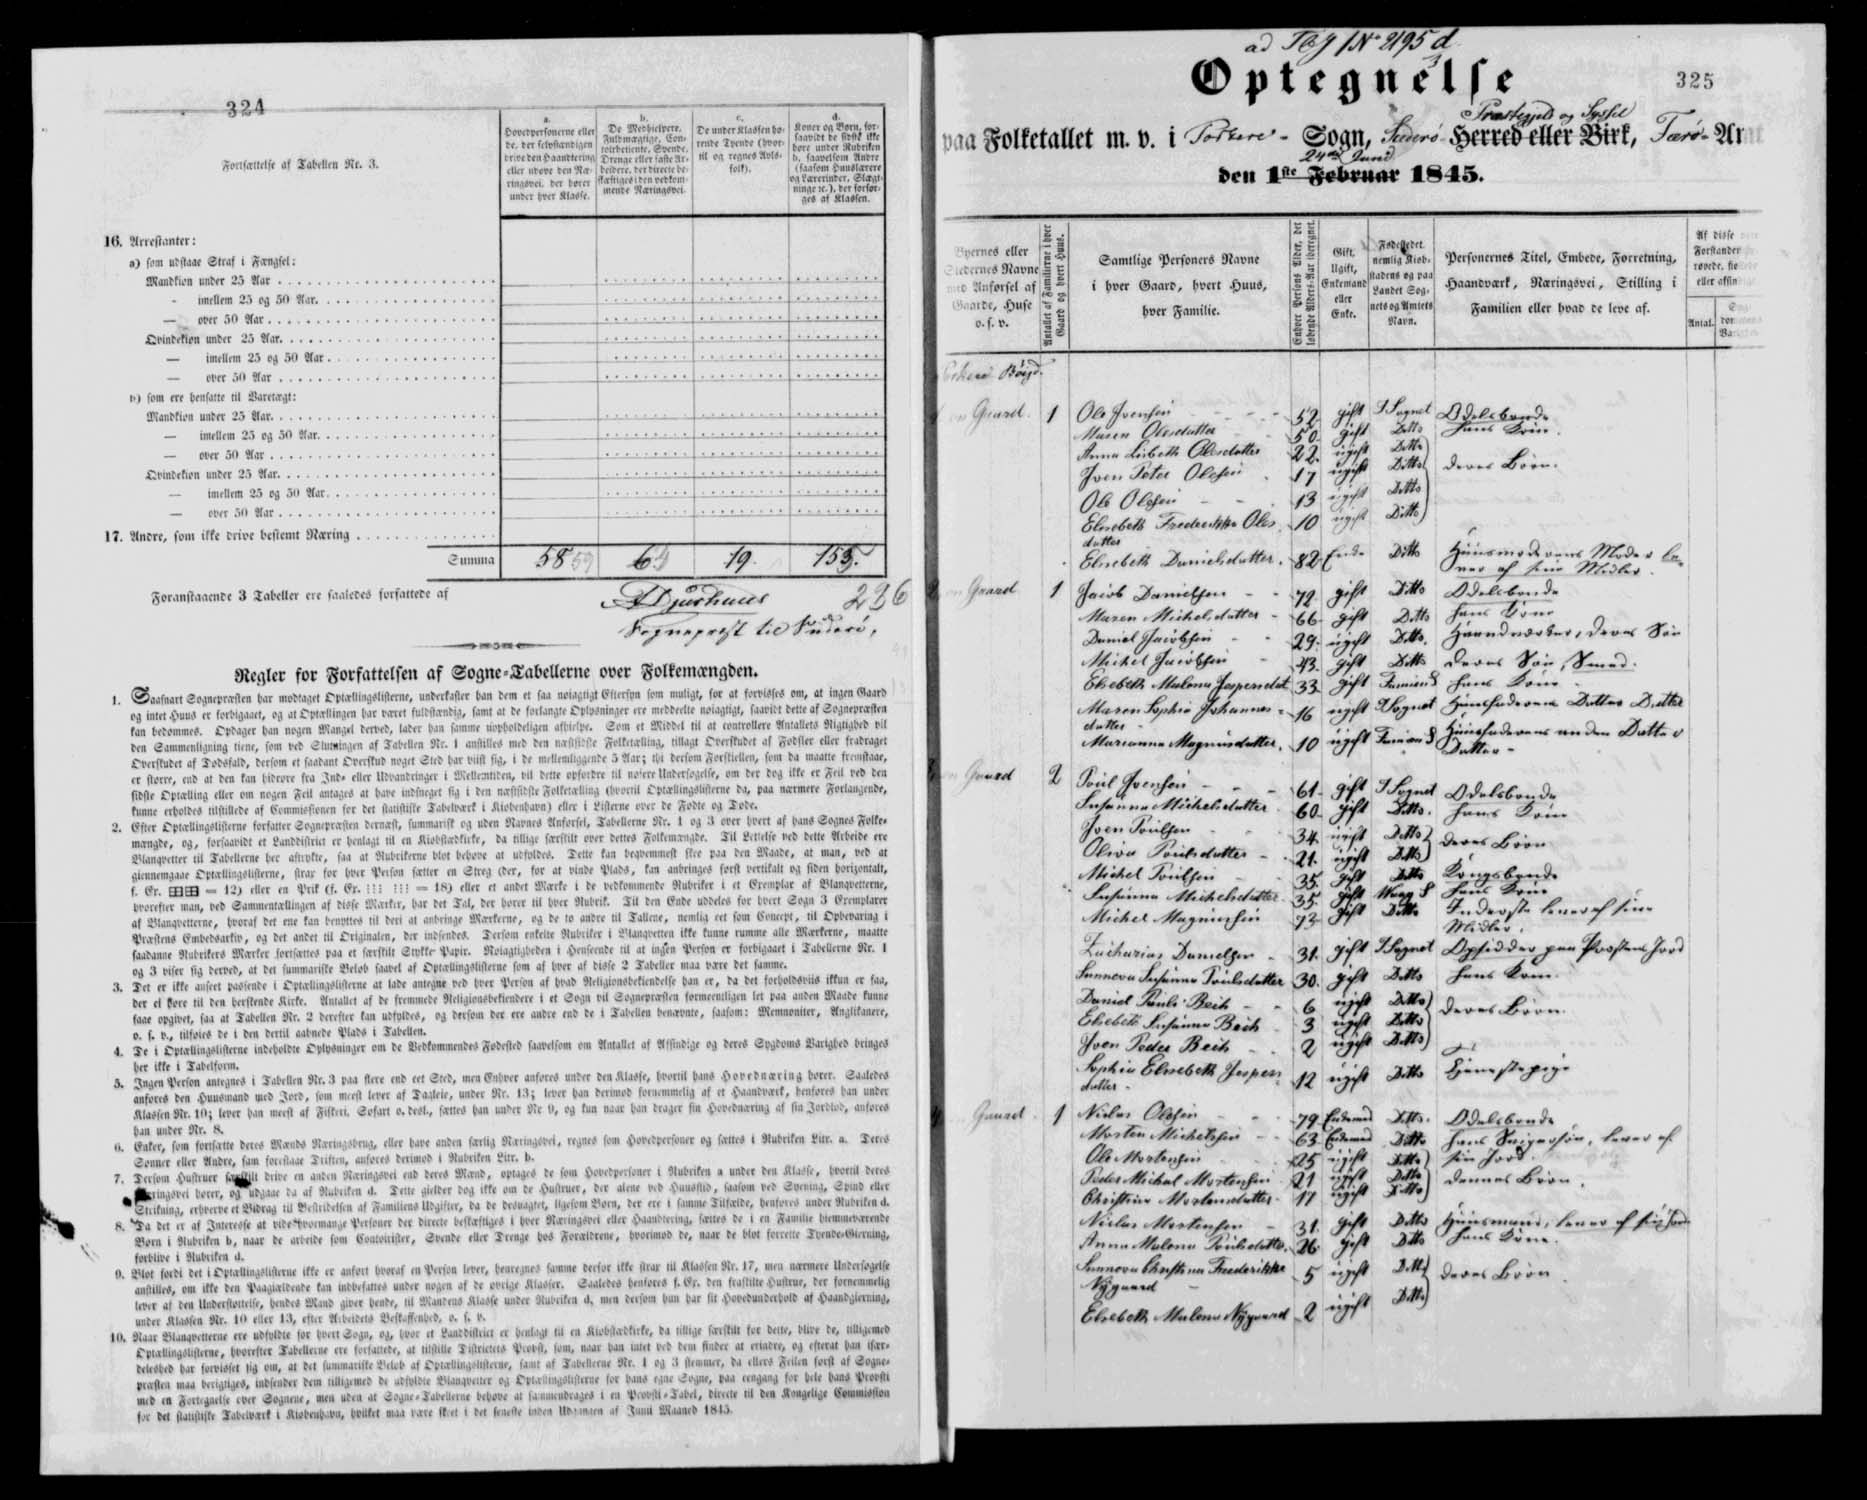 324
Fortsættelse af Tabellen Nr. 3.
a.
Hovedpersonerne eller
de, der selvstændigen
drive den Haandtering
eller udøve den Næ-
ringsvei, der hører
under hver Klasse.
b.
De Medhjelpere,
Fuldmægtige, Con-
toirbetiente, Svende,
Drenge eller faste Ar-
beidere, der directe be-
skæftiges i den vedkom-
mende Næringsvei.
c.
De under Klassen hø-
rende Tyende (hvor-
til og regnes Avls-
folk).
d.
Koner og Børn, for-
saavidt de sidste ikke
høre under Rubriken
b, saavelsom Andre
(saasom Huuslærere
og Lærerinder, Slægt-
ninge ec.), der forsør-
ges af Klassen.
16. Arrestanter:
a) som udstaae Straf i Fængsel:
Mandkion under 25 Aar
- imellem 25 og 50 Aar.
— over 50 Aar
Qvindekion under 25 Aar.
— imellem 25 og 50 Aar
— over 50 Aar
b) som ere hensatte til Varetægt:
Mandkion under 25 Aar.
— imellem 25 og 50 Aar.
— over 50 Aar
Qvindekion under 25 Aar.
— imellem 25 og 50 Aar
— over 50 Aar
17. Andre, som ikke drive bestemt Næring
Summa 58 59 64 19. 155.
Foranstaaende 3 Tabeller ere saaledes forfattede af
236
Sognepræst til Suderö,
Regler for Forfattelsen af Sogne-Tabellerne over Folkemængden.
1. Saasnart Sognepræsten har modtaget Optællingslisterne, underkaster han dem et saa nøiagtigt Eftersyn som muligt, for at forvisses om, at ingen Gaard
og intet Huus er forbigaaet, og at Optællingen har været fuldstændig, samt at de forlangte Oplysninger ere meddeelte nøiagtigt, saavidt dette af Sognepræsten
kan bedømmes. Opdager han nogen Mangel derved, lader han samme uopholdeligen afhielpe. Som et Middel til at controllere Antallets Rigtighed vil
den Sammenligning tiene, som ved Slutningen af Tabellen Nr. 1 anstilles med den næstsidste Folketælling, tillagt Overskudet af Fødsler eller fradraget
Overskudet af Dødsfald, dersom et saadant Overskud noget Sted har viist sig, i de mellemliggende 5 Aar; thi dersom Forskiellen, som da maatte fremstaae,
er større, end at den kan hidrøre fra Ind- eller Udvandringer i Mellemtiden, vil dette opfordre til nøiere Undersøgelse, om der dog ikke er Feil ved den
sidste Optælling eller om nogen Feil antages at have indsneget sig i den næstsidste Folketælling (hvortil Optællingslisterne da, paa nærmere Forlangende,
kunne erholdes tilstillede af Commissionen for det statistiske Tabelværk i Kiøbenhavn) eller i Listerne over de Fødte og Døde.
2. Efter Optællingslisterne forfatter Sognepræsten dernæst, summarisk og uden Navnes Anførsel, Tabellerne Nr. 1 og 3 over hvert af hans Sognes Folke-
mængde, og, forsaavidt et Landdistrict er henlagt til en Kiøbstædkirke, da tillige særskilt over dettes Folkemængde. Til Lettelse ved dette Arbeide ere
Blanqvetter til Tabellerne her aftrykte, saa at Rubrikerne blot behøve at udfyldes. Dette kan beqvemmest skee paa den Maade, at man, ved at
giennemgaae Optællingslisterne, strax for hver Person sætter en Streg (der, for at vinde Plads, kan anbringes først vertikalt og siden horizontalt,
f. Ex. = 12) eller en Prik (f. Ex. = 18) eller et andet Mærke i de vedkommende Rubriker i et Exemplar af Blanqvetterne,
hvorefter man, ved Sammentællingen af disse Mærker, har det Tal, der hører til hver Rubrik. Til den Ende uddeles for hvert Sogn 3 Exemplarer
af Blanqvetterne, hvoraf det ene kan benyttes til deri at anbringe Mærkerne, og de to andre til Tallene, nemlig eet som Concept, til Opbevaring i
Præstens Embedsarkiv, og det andet til Originalen, der indsendes. Dersom enkelte Rubriker i Blanqvetten ikke kunne rumme alle Mærkerne, maatte
saadanne Rubrikers Mærker fortsættes paa et særskilt Stykke Papir. Nøiagtigheden i Henseende til at ingen Person er forbigaaet i Tabellerne Nr. 1
og 3 viser sig derved, at det summariske Beløb saavel af Optællingslisterne som af hver af disse 2 Tabeller maa være det samme.
3. Det er ikke anseet passende i Optællingslisterne at lade antegne ved hver Person af hvad Religionsbekiendelse han er, da det forholdsviis ikkun er faa,
der ei høre til den herskende Kirke. Antallet af de fremmede Religionsbekiendere i et Sogn vil Sognepræsten formeentligen let paa anden Maade kunne
faae opgivet, saa at Tabellen Nr. 2 derefter kan udfyldes, og dersom der ere andre end de i Tabellen benævnte, saasom: Memnoniter, Anglikanere,
o. s. v., tilføies de i den dertil aabnede Plads i Tabellen.
4. De i Optællingslisterne indeholdte Oplysninger om de Vedkommendes Fødested saavelsom om Antallet af Afsindige og deres Sygdoms Varighed bringes
her ikke i Tabelform.
5. Ingen Person antegnes i Tabellen Nr. 3 paa flere end eet Sted, men Enhver anføres under den Klasse, hvortil hans Hovednæring hører. Saaledes
anføres den Huusmand med Jord, som meest lever af Dagleie, under Nr. 13; lever han derimod fornemmelig af et Haandværk, henføres han under
Klassen Nr. 10; lever han meest af Fiskeri, Søfart o. desl., sættes han under Nr 9, og kun naar han drager sin Hovednæring af sin Jordlod, anføres
han under Nr. 8.
6. Enker, som fortsætte deres Mænds Næringsbrug, eller have anden særlig Næringsvei, regnes som Hovedpersoner og sættes i Rubriken Litr. a. Deres
Sønner eller Andre, som forestaae Driften, anføres derimod i Rubriken Litr. b.
7. Dersom Hustruer særskilt drive en anden Næringsvei end deres Mænd, optages de som Hovedpersoner i Rubriken a under den Klasse, hvortil deres
Næringsvei hører, og udgaae da af Rubriken d. Dette gielder dog ikke om de Hustruer, der alene ved Huusflid, saasom ved Syening, Spind eller
Strikning, erhverve et Bidrag til Bestridelsen af Familiens Udgifter, da de desuagtet, ligesom Børn, der ere i samme Tilfælde, henføres under Rubriken d.
8. Da det er af Interesse at vide hvormange Personer der directe beskæftiges i hver Næringsvei eller Haandtering, sættes de i en Familie hiemmeværende
Børn i Rubriken b, naar de arbeide som Contoirister, Svende eller Drenge hos Forældrene, hvorimod de, naar de blot forrette Tyende-Gierning,
forblive i Rubriken d.
9. Blot fordi det i Optællingslisterne ikke er anført hvoraf en Person lever, henregnes samme derfor ikke strax til Klassen Nr. 17, men nærmere Undersøgelse
anstilles, om ikke den Paagiældende kan indbefattes under nogen af de øvrige Klasser. Saaledes henføres f. Ex. den fraskilte Hustrue, der fornemmelig
lever af den Understøttelse, hendes Mand giver hende, til Mandens Klasse under Rubriken d, men dersom hun har sit Hovedunderhold af Haandgierning,
under Klassen Nr. 10 eller 13, efter Arbeidets Beskaffenhed, o. s. v.
10. Naar Blanqvetterne ere udfyldte for hvert Sogn, og, hvor et Landdistrict er henlagt til en Kiøbstædkirke, da tillige særskilt for dette, blive de, tilligemed
Optællingslisterne, hvorefter Tabellerne ere forfattede, at tilstille Districtets Provst, som, naar han intet ved dem finder at erindre, og efterat han især-
deleshed har forvisset sig om, at det summariske Beløb af Optællingslisterne, samt af Tabellerne Nr. 1 og 3 stemmer, da ellers Feilen først af Sogne-
præsten maa berigtiges, indsender dem tilligemed de udfyldte Blanqvetter og Optællingslisterne for hans egne Sogne, paa eengang for hele hans Provsti
med en Fortegnelse over Sognene, men uden at Sogne-Tabellerne behøve at sammendrages i en Provsti-Tabel, directe til den Kongelige Commission
for det statistiske Tabelværk i Kiøbenhavn, hvilket maa være skeet i det seneste inden Udgangen af Junii Maaned 1845.
ad No 2195 d
3
Optegnelse
325
Præstegjeld og Syssel
paa Folketallet m. v. i Porkere - Sogn, Suderö Herred eller Birk, Færö- Amt
24de Juni
den 1ste Februar 1845.
Byernes eller
Stedernes Navne
med Anførsel af
Gaarde, Huse
o. s. v.
Antallet af Familierne i hver
Gaard og hvert Huus.
Samtlige Personers Navne
i hver Gaard, hvert Huus,
hver Familie.
Enhver Persons Alder, det
løbende Alders-Aar iberegnet.
Gift,
Ugift,
Enkemand
eller
Enke.
Fødestedet,
nemlig Kiøb-
stadens og paa
Landet Sog-
nets og Amtets
Navn.
Personernes Titel, Embede, Forretning,
Haandværk, Næringsvei, Stilling i
Familien eller hvad de leve af.
Af disse
Forstander
røvede,
eller afsindige
Antal.
Porkere Böigd.
en Gaard. 1 Ole Joensen 52 gift I Sognet Odelsbonde
Maren Olesdatter 50 gift Ditto hans Kone.
Anna Lisbeth Olesdatter 22 ugift Ditto
Joen Peter Olesen 17 ugift Ditto deres Börn.
Ole Olesen 13 ugift Ditto
Elsebeth Frederikke Oles 10 ugift Ditto
datter
Elsebeth Danielsdatter 82 Enke Ditto Huusmoderens Moder le-
ver af sine Midler.
en Gaard 1 Jacob Danielsen 72 gift Ditto Odelsbonde
Maren Michelsdatter 66 gift Ditto hans Kone
Daniel Jacobsen 29 ugift Ditto. Haandverker, deres Sön
Michel Jacobsen 43 gift Ditto deres Sön, Smed.
Elsebeth Malena Jespersdat 33 gift Famien S hans Kone
Maren Sophia Johannes- 16 ugift I Sognet Huusfaderens Datters Datter
datter
Marianna Magnusdatter 10 ugift Famien S Huusfaderens anden Datters
Datter
en Gaard 2 Poul Joensen 61 gift I Sognet Odelsbonde
Susanna Michelsdatter 60 gift Ditto. hans Kone
Joen Poulsen 34 ugift Ditto deres Börn
Oliva Poulsdatter 21 ugift Ditto
Michel Poulsen 35 gift Ditto Kongsbonde
Susanna Michelsdatter 35 gift Waag S hans Kone
Michel Magnussen 73 gift Ditto Inderste lever af sine
Midler.
Zacharias Danielsen 31. gift I Sognet Opsidder paa Præstens Jord
Sunneva Susanna Poulsdatter 30. gift Ditto hans Kone
Daniel Pauli Bech 6 ugift Ditto deres Börn.
Elsebeth Susanna Bech 3 ugift Ditto
Joen Peder Bech 2 ugift Ditto
Sophia Elsebeth Jespers 12 ugift Ditto Tjenestepige
datter
Gaard 1 Niclas Olesen 79 Enkemd Ditto. Odelsbonde
Morten Michelsen 63 Enkemd Ditto hans Svigersön, lever af
Ole Mortensen 25 ugift Ditto sin Jord.
Peder Michal Mortensen 21 ugift Ditto dennes Börn.
Christina Mortensdatter 17 ugift Ditto
Niclas Mortensen 31. gift Ditto Huusmand, lever af sin Jord
Anna Malena Poulsdatter 26 gift Ditto hans Kone.
Sunneva Christina Frederikke 5 ugift Ditto deres Börn
Nygaard
Elsebeth Malena Nygaard 2 ugift Ditto